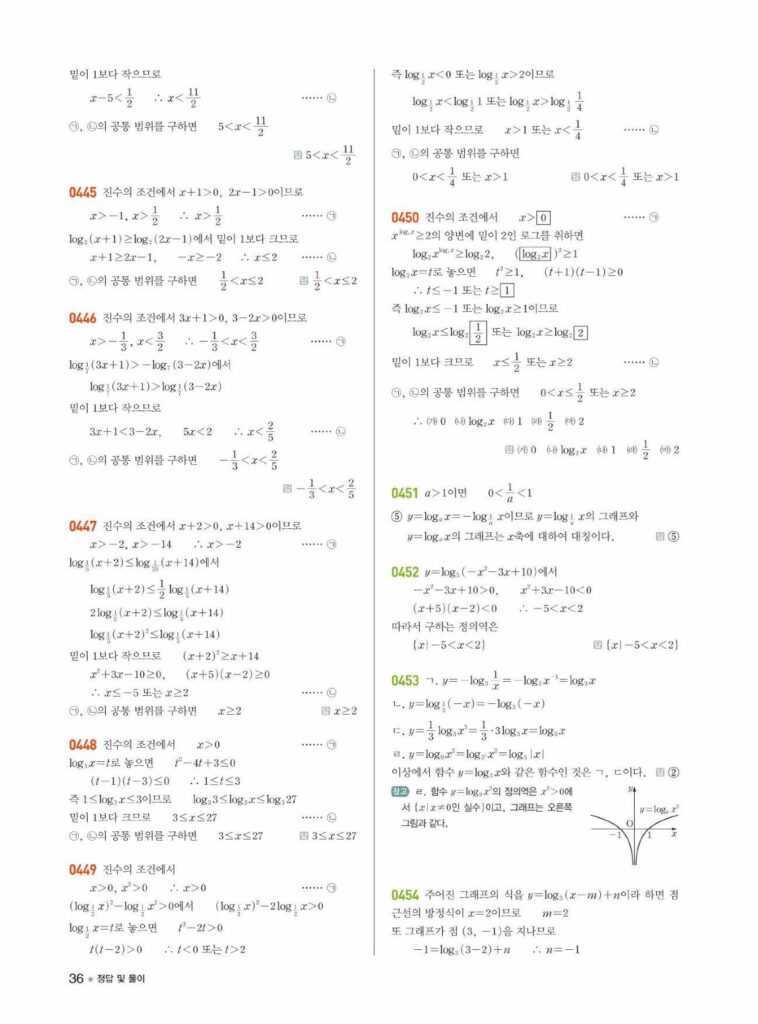 밑이 1보다 작으므로
x-5<1/2 ∴ x<11/2 …… ㉡
㉠, ㉡의 공통 범위를 구하면 5<x<11/2
답 5<x<11/2
0445 진수의 조건에서 x+1>0, 2x-1>0이므로
x>-1, x>1/2 ∴ x>1/2 …… ㉠
log₂(x+1)≥log₂(2x-1)에서 밑이 1보다 크므로
x+1≥2x-1, -x≥-2 ∴ x≤2 …… ㉡
㉠, ㉡의 공통 범위를 구하면 1/2<x≤2 답 1/2<x≤2
0446 진수의 조건에서 3x+1>0, 3-2x>0이므로
x>-1/3, x<3/2 ∴ -1/3<x<3/2 …… ㉠
log_{1/7}(3x+1)>-log₇(3-2x)에서
log_{1/7}(3x+1)>log_{1/7}(3-2x)
밑이 1보다 작으므로
3x+1<3-2x, 5x<2 ∴ x<2/5 …… ㉡
㉠, ㉡의 공통 범위를 구하면 -1/3<x<2/5
답 -1/3<x<2/5
0447 진수의 조건에서 x+2>0, x+14>0이므로
x>-2, x>-14 ∴ x>-2 …… ㉠
log_{1/5}(x+2)≤log_{1/25}(x+14)에서
log_{1/5}(x+2)≤1/2 log_{1/5}(x+14)
2log_{1/5}(x+2)≤log_{1/5}(x+14)
log_{1/5}(x+2)²≤log_{1/5}(x+14)
밑이 1보다 작으므로 (x+2)²≥x+14
x²+3x-10≥0, (x+5)(x-2)≥0
∴ x≤-5 또는 x≥2 …… ㉡
㉠, ㉡의 공통 범위를 구하면 x≥2 답 x≥2
0448 진수의 조건에서 x>0 …… ㉠
log₃x=t로 놓으면 t²-4t+3≤0
(t-1)(t-3)≤0 ∴ 1≤t≤3
즉 1≤log₃x≤3이므로 log₃3≤log₃x≤log₃27
밑이 1보다 크므로 3≤x≤27 …… ㉡
㉠, ㉡의 공통 범위를 구하면 3≤x≤27 답 3≤x≤27
0449 진수의 조건에서
x>0, x²>0 ∴ x>0 …… ㉠
(log_{1/2}x)²-log_{1/2}x²>0에서 (log_{1/2}x)²-2log_{1/2}x>0
log_{1/2}x=t로 놓으면 t²-2t>0
t(t-2)>0 ∴ t<0 또는 t>2
즉 log_{1/2}x<0 또는 log_{1/2}x>2이므로
log_{1/2}x<log_{1/2}1 또는 log_{1/2}x>log_{1/2}1/4
밑이 1보다 작으므로 x>1 또는 x<1/4 …… ㉡
㉠, ㉡의 공통 범위를 구하면
0<x<1/4 또는 x>1 답 0<x<1/4 또는 x>1
0450 진수의 조건에서 x>0 …… ㉠
x^{log₂x}≥2의 양변에 밑이 2인 로그를 취하면
log₂x^{log₂x}≥log₂2, (log₂x)²≥1
log₂x=t로 놓으면 t²≥1, (t+1)(t-1)≥0
∴ t≤-1 또는 t≥1
즉 log₂x≤-1 또는 log₂x≥1이므로
log₂x≤log₂1/2 또는 log₂x≥log₂2
밑이 1보다 크므로 x≤1/2 또는 x≥2 …… ㉡
㉠, ㉡의 공통 범위를 구하면 0<x≤1/2 또는 x≥2
∴ ㈎ 0 ㈏ log₂x ㈐ 1 ㈑ 1/2 ㈒ 2
답 ㈎ 0 ㈏ log₂x ㈐ 1 ㈑ 1/2 ㈒ 2
0451 a>1이면 0<1/a<1
⑤ y=logₐx=-log_{1/a}x이므로 y=log_{1/a}x의 그래프와
y=logₐx의 그래프는 x축에 대하여 대칭이다. 답 ⑤
0452 y=log₅(-x²-3x+10)에서
-x²-3x+10>0, x²+3x-10<0
(x+5)(x-2)<0 ∴ -5<x<2
따라서 구하는 정의역은
{x|-5<x<2} 답 {x|-5<x<2}
0453 ㄱ. y=-log₃1/x=-log₃x⁻¹=log₃x
ㄴ. y=log_{1/3}(-x)=-log₃(-x)
ㄷ. y=1/3 log₃x³=1/3·3log₃x=log₃x
ㄹ. y=log₉x²=log_{3²}x²=log₃|x|
이상에서 함수 y=log₃x와 같은 함수인 것은 ㄱ, ㄷ이다. 답 ②
참고 ㄹ. 함수 y=log₉x²의 정의역은 x²>0에
서 {x|x≠0인 실수}이고, 그래프는 오른쪽
그림과 같다.
y
y=log₉x²
O
-1 1 x
0454 주어진 그래프의 식을 y=log₃(x-m)+n이라 하면 점
근선의 방정식이 x=2이므로 m=2
또 그래프가 점 (3, -1)을 지나므로
-1=log₃(3-2)+n ∴ n=-1
36 ★ 정답 및 풀이